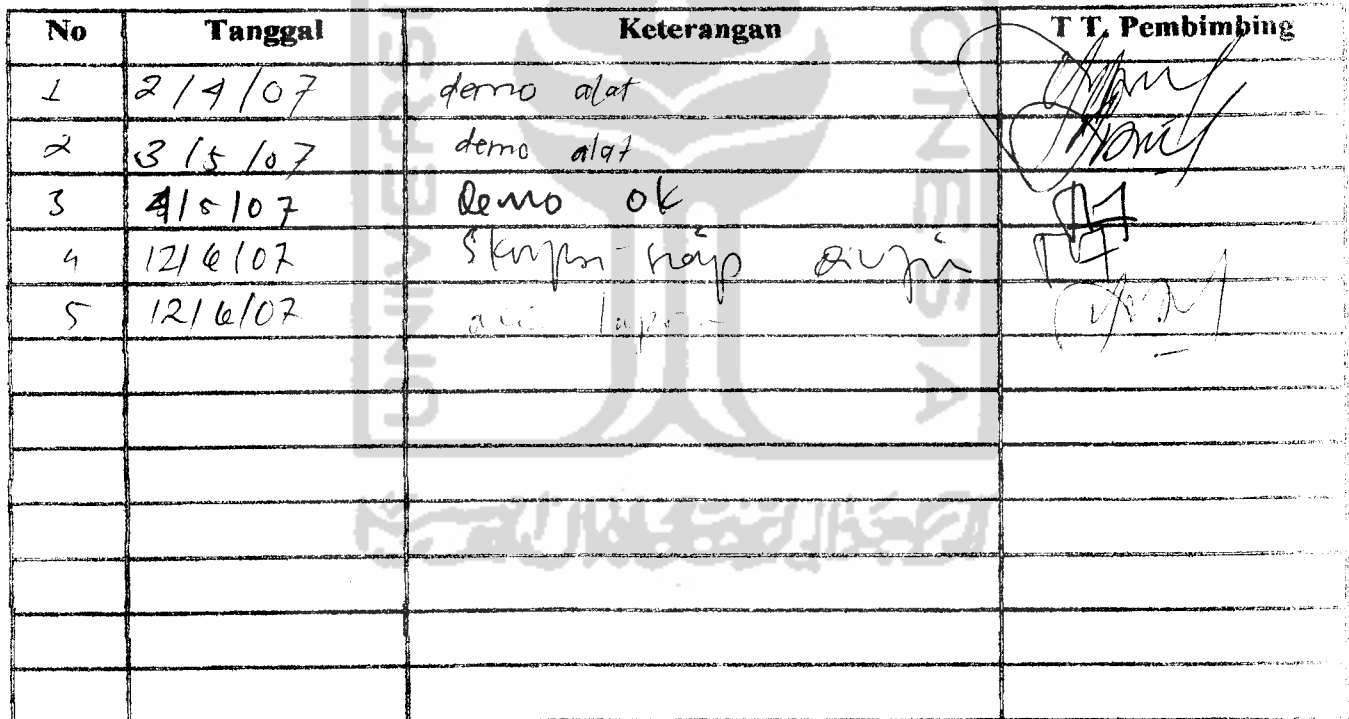 No Tanggal Keterangan T T. Pembimbing
1 2/4/07 demo alat
2 3/5/07 demo alat
3 4/5/07 Demo ok
4 12/6/07 Skripsi siap diuji
5 12/6/07 acc lapor